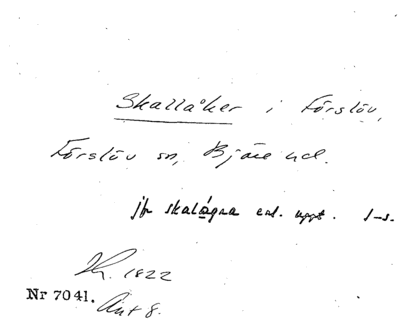 Skallåker i Förslöv,
Förslöv sn, Bjäre hd.
jfr skalågra enl. uppt. 1-s.
1822
Nr 7041. Akt 8.